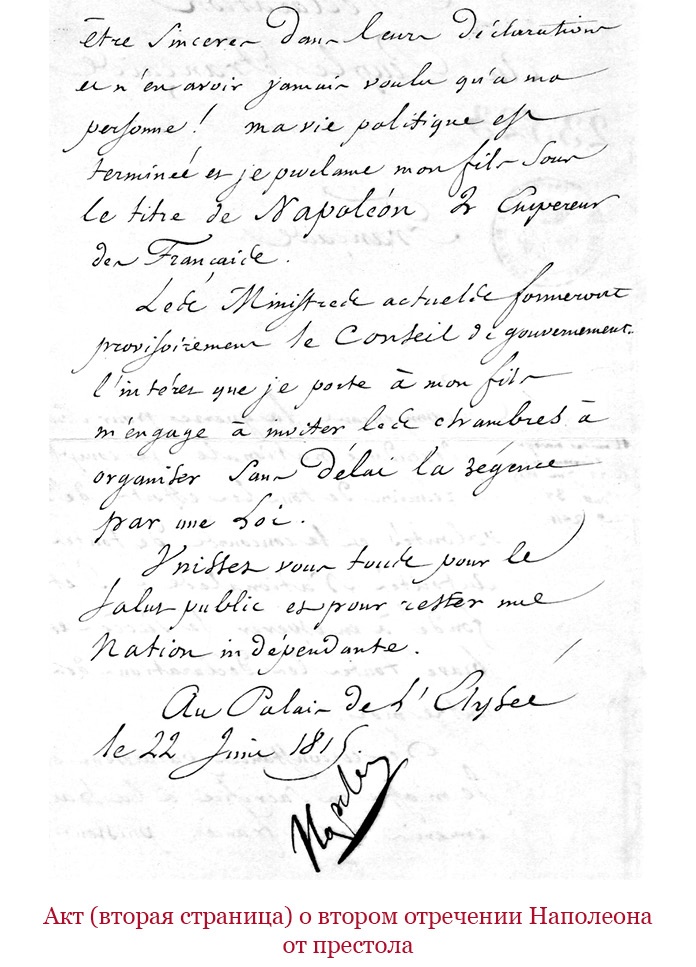 être sinceres dans leurs déclarations
et n'en avoir jamais voulu qu'a ma
personne! ma vie politique est
terminée et je proclame mon fils Sous
le titre de Napoléon 2 Empereur
des Français.
Les Ministres actuels formeront
provisoirement le Conseil de gouvernement.
l'intéret que je porte à mon fils
m'engage à inviter les chambres à
organiser Sans Délai la régence
par une Loi.
Unissez vous tous pour le
Salut public et pour rester une
Nation indépendante.
Au Palais de L'Elysée
le 22 Juin 1815.
Napoleon
Акт (вторая страница) о втором отречении Наполеона
от престола